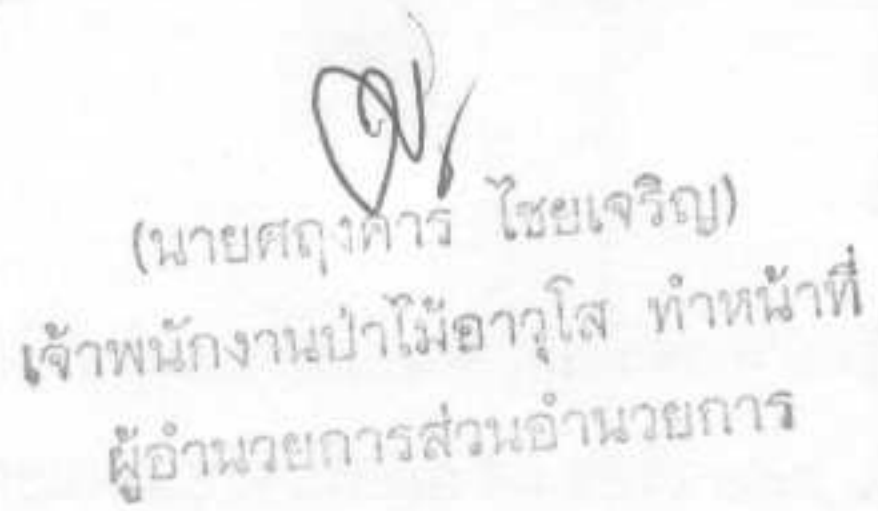 (นายศฤงคาร ไชยเจริญ)
เจ้าพนักงานป่าไม้อาวุโส ทำหน้าที่
ผู้อำนวยการส่วนอำนวยการ